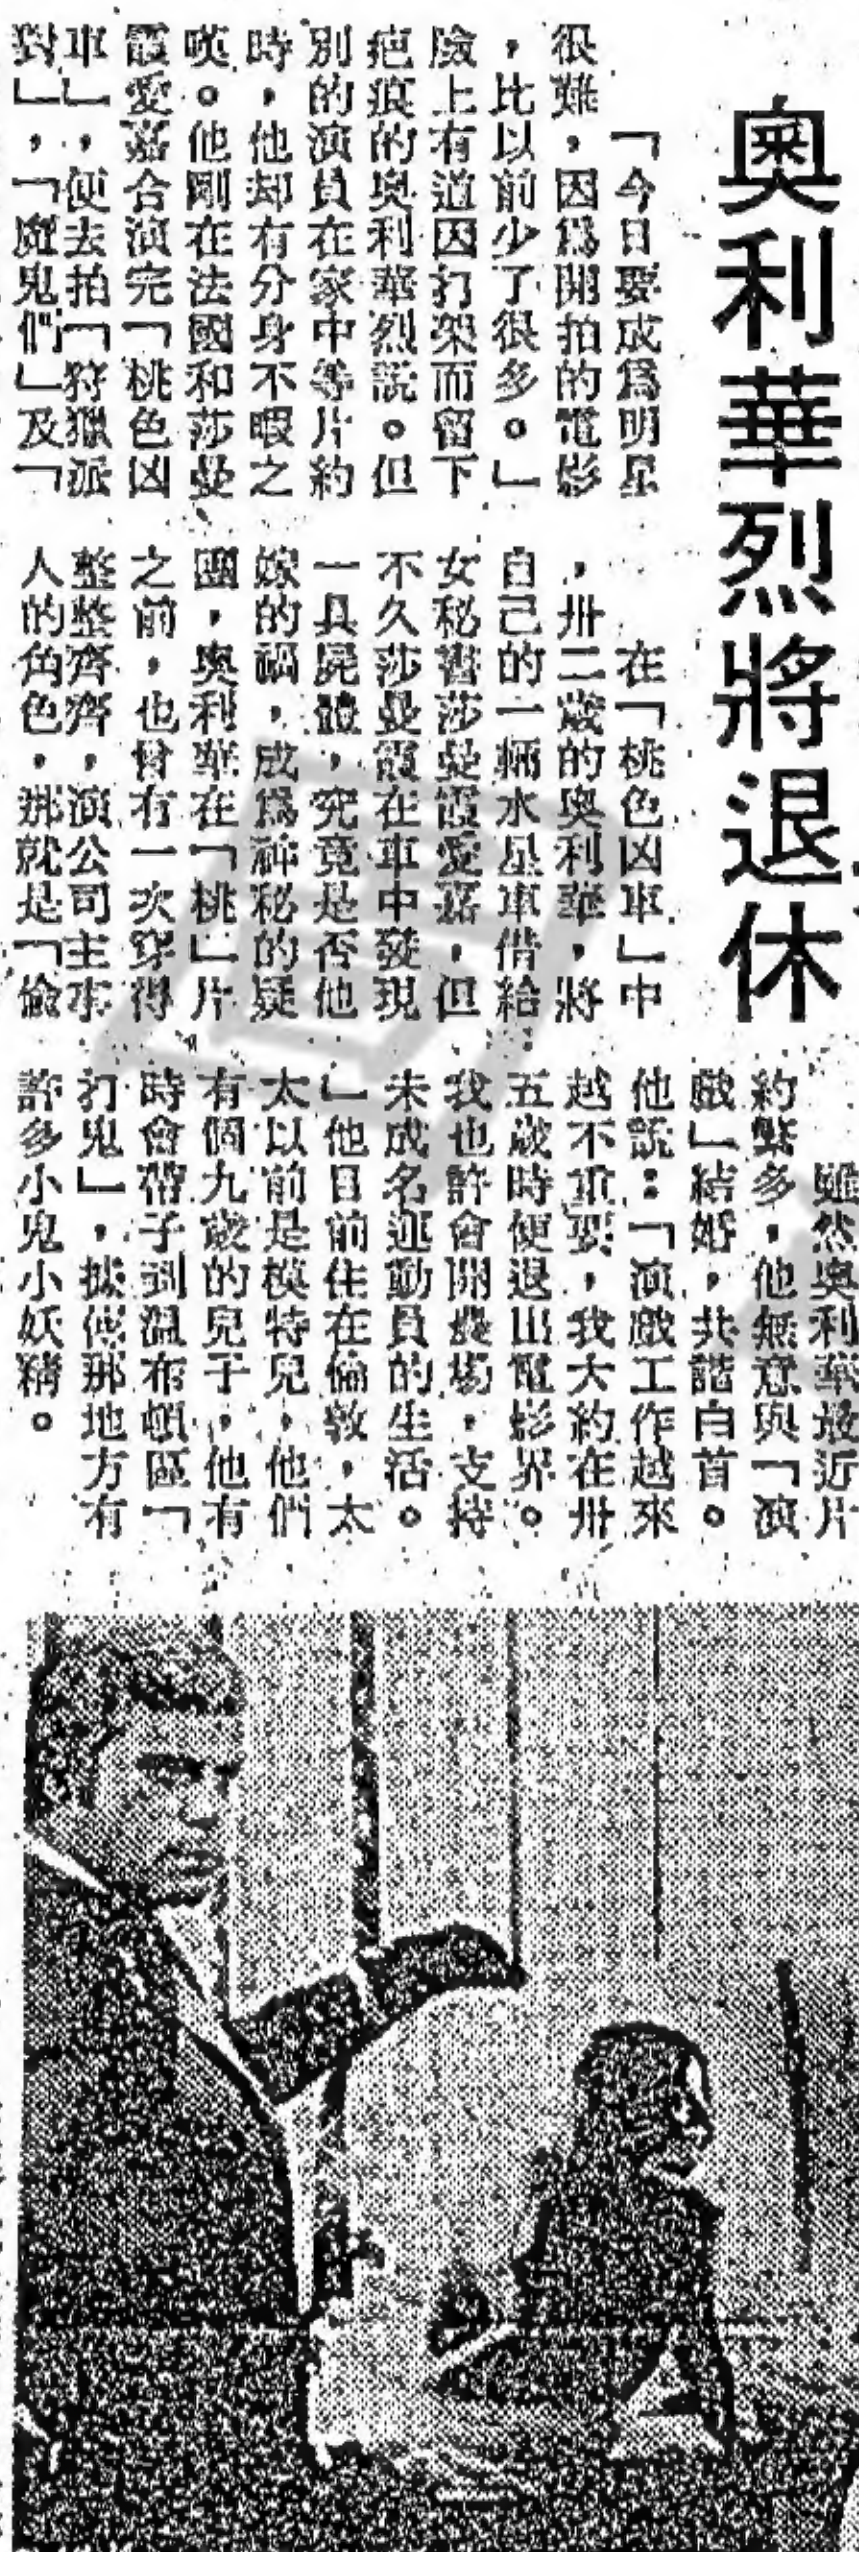 奧利華烈將退休
「今日要成爲明星
很難，因爲開拍的電影
，比以前少了很多。」
臉上有道因打架而留下
疤痕的奧利華烈說。但
別的演員在家中等片約
時，他却有分身不暇之
嘆。他剛在法國和莎曼
霞愛嘉合演完「桃色凶
車」，便去拍「狩獵派
對」，「魔鬼們」及「
在「桃色凶車」中
，卅二歲的奧利華，將
自己的一輛水星車借給
女秘書莎曼霞愛嘉，但
不久莎曼霞在車中發現
一具屍體，究竟是否他
嫁的禍，成爲神秘的疑
團，奧利華在「桃」片
之前，也曾有一次穿得
整整齊齊，演公司主事
人的角色，那就是「偷
雖然奧利華最近片
約繁多，他無意與「演
戲」結婚，共諧白首。
他說：「演戲工作越來
越不重要，我大約在卅
五歲時便退出電影界。
我也許會開農場，支持
未成名運動員的生活。
」他目前住在倫敦，太
太以前是模特兒，他們
有個九歲的兒子，他有
時會帶子到溫布頓區「
打鬼」，據傳那地方有
許多小鬼小妖精。